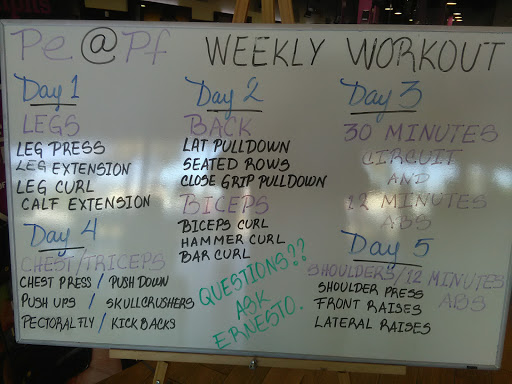 Pe@Pf WEEKLY WORKOUT
Day 1
LEGS
LEG PRESS
LEG EXTENSION
LEG CURL
CALF EXTENSION
Day 2
BACK
LAT PULLDOWN
SEATED ROWS
CLOSE GRIP PULLDOWN
BICEPS
BICEPS CURL
HAMMER CURL
BAR CURL
Day 3
30 MINUTES
CIRCUIT
AND
12 MINUTES
ABS
Day 4
CHEST/TRICEPS
CHEST PRESS / PUSH DOWN
PUSH UPS / SKULLCRUSHERS
PECTORAL FLY / KICK BACKS
Day 5
SHOULDERS/12 MINUTES
ABS
SHOULDER PRESS
FRONT RAISES
LATERAL RAISES
QUESTIONS??
ASK
ERNESTO.